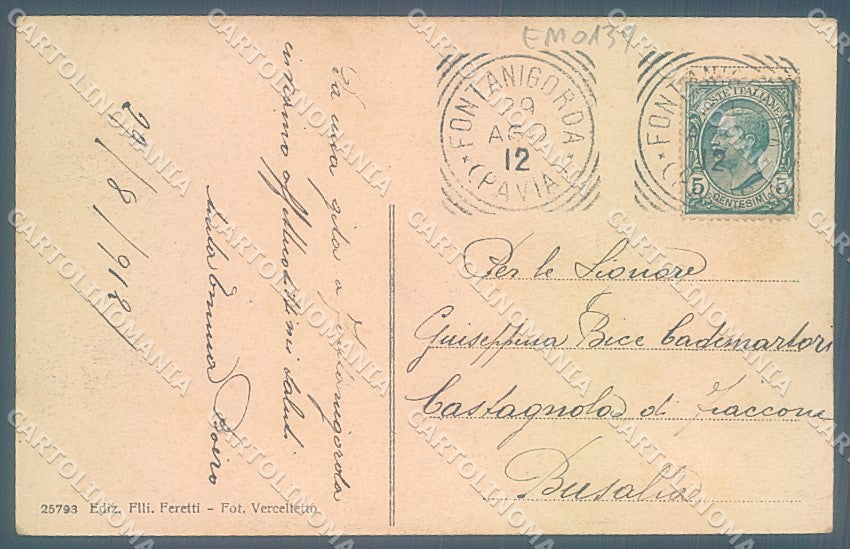 EM0134
FONTANIGORDA
29
AGO
12
(PAVIA)
FONTANIGORDA
12
POSTE ITALIANE
5 CENTESIMI 5
Per le Signore
Guiseppina Bice Cademartori
Castagnola di Fraccone
Busalla
Da una gita a Fontanigorda
inviamo affettuosissimi saluti
Emma Boero
29/8/912
25793 Ediz. Flli. Feretti - Fot. Vercelletto
CARTOLINOMANIA